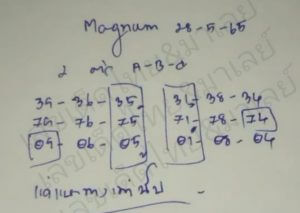 Magnum 28-5-65
2 ตัว A-B-C
39-36-35 31-38-34
79-76-75 71-78-74
09-06-05 01-08-04